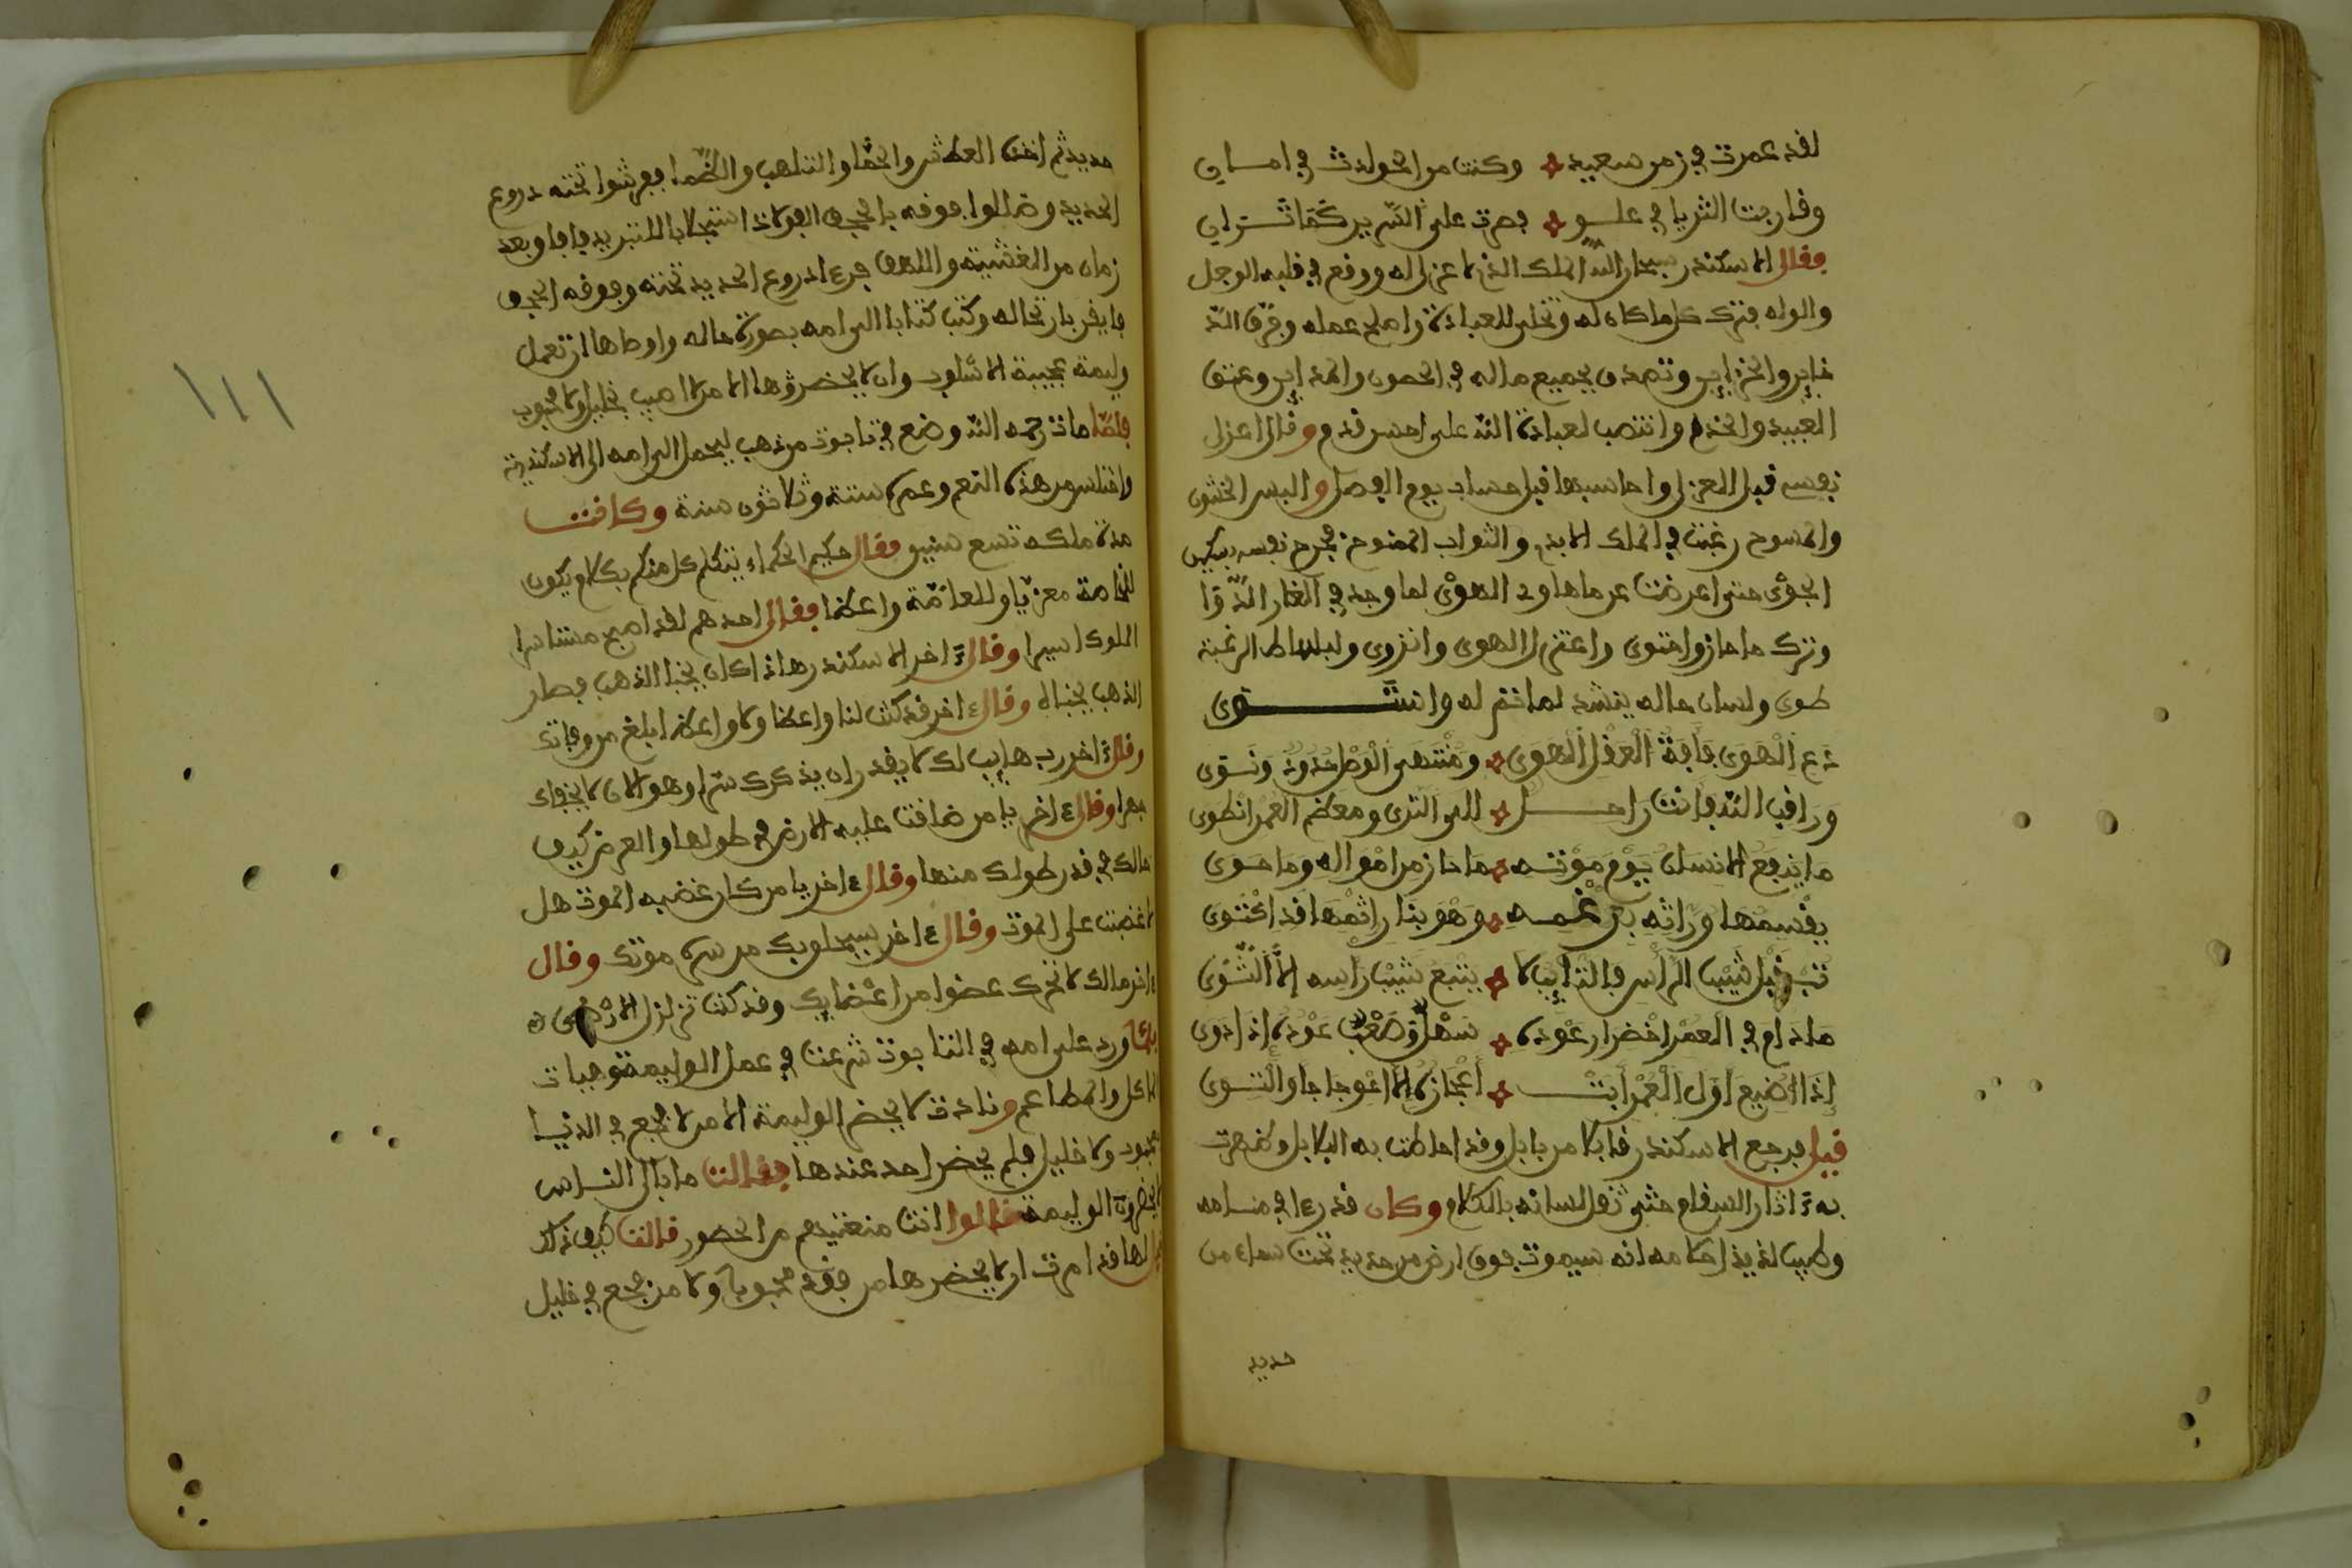 لقد عمرت في زمن سعيد وكنت من الحوادث في امان
وقاربت الثريا في علو فصرت على السرير كما تراني
فقال الاسكندر سبحان الله الملك الذي لا عزل له ووقع في قلبه الوجل
والوله فترك كل ما كان له وتخلى للعبادة واصلح عمله وفرق الذ
خاير والخزاين وتصدق بجميع ماله في الحصون والمداين وعتق
العبيد والخدم وانتصب لعبادة الله على احسن قدم وقال اعزل
نفسي قبل العزل واحاسبها قبل حساب يوم الفصل ولبس الخشن
والمسوح رغبت في الملك الابدي والثواب الممنوح فجرح نفسه بسكين
الجوى حتى اعرضت عن ماهاود الهوى لما وجد في الغار الدوا
وترك ما حاز واحتوى واعتزل الهوى وانزوى ولبساط الرغبة
طوى ولسان حاله ينشد لما تم له واستوى
دع الهوى فآفة العقل الهوى ومنتهى الوصل صدود ونوى
وراقب الله فانت راحل الى الثرى ومعظم العمر انطوى
ما ينفع الانسان يوم موته ما حاز من امواله وما حوى
يقسمها وراثه برغمه وهو بنار اثمها قد اكتوى
تب قبل شيب الراس فالتايب لا يتبع شيب راسه الا الشوى
مادام في العمر اخضرار عوده سهل وصعب عوده اذا ذوى
اذا اضيع اول العمر ابت اعجازه الا اعوجاجا والتوى
قيل فرجع الاسكندر قافلا من بابل وقد احاطت به البلابل وظهرت
به اثار السقام حتى ثقل لسانه بالكلام وكان قد رءا في منامه
وطيب لذيذ احلامه انه سيموت فوق ارض من حديد تحت سماء من
حديد
حديد ثم اخذه العطش والحما والتلهب والظما ففرشوا تحته دروع
الحديد وظللوا فوقه بالحجف الفولاذ استجلابا للتبريد فافاق بعد
زمان من الغشية واللهف فرءا دروع الحديد تحته وفوقه الحجف
فايقن بارتحاله وكتب كتابا الى امه بصورة حاله واوصاها ان تعمل
وليمة عجيبة الاسلوب وان لا يحضروها الا من لا اصيب بخليل ولا محبوب
فلما مات رحمه الله وضع في تابوت من ذهب ليحمل الى امه الى الاسكندرية
واختلس من هذه النعم وعمره ستة وثلاثون سنة وكانت
مدة ملكه تسع سنين فقال حكيم الحكماء يتكلم كل منكم بكلام يكون
للخاصة معزيا وللعامة واعظا فقال احدهم لقد اصبح مستاسر
الملوك اسيرا وقال اخر الاسكندر هاذا كان يخبا الذهب فصار
الذهب يخباه وقال اخر قد كنت لنا واعظا ولا واعظ ابلغ من وفاتك
وقال اخر رب هايب لك لا يقدر ان يذكرك سرا وهو الان لا يخافك
جهرا وقال اخر يا من ضاقت عليه الارض في طولها والعرض كيف
حالك في قدر طولك منها وقال اخر يا من كان غضبه الموت هل
لا غضبت على الموت وقال اخر سيلحق بك من سره موتك وقال
اخر مالك لا تحرك عضوا من اعضايك وقد كنت تزلزل الارض
فلما ورد على امه في التابوت شرعت في عمل الوليمة وهيات
الماكل والمطاعم ونادت لا يحضر الوليمة الا من لا فجع في الدنيا
بمحبوب ولا خليل فلم يحضر احد عندها فقالت ما بال الناس
لا يحضرون الوليمة قالوا انت منعتيهم من الحضور قالت كيف ذلك
قيل لها قد امرت ان لا يحضرها من فقد محبوبا ولا من فجع في خليل
١١١